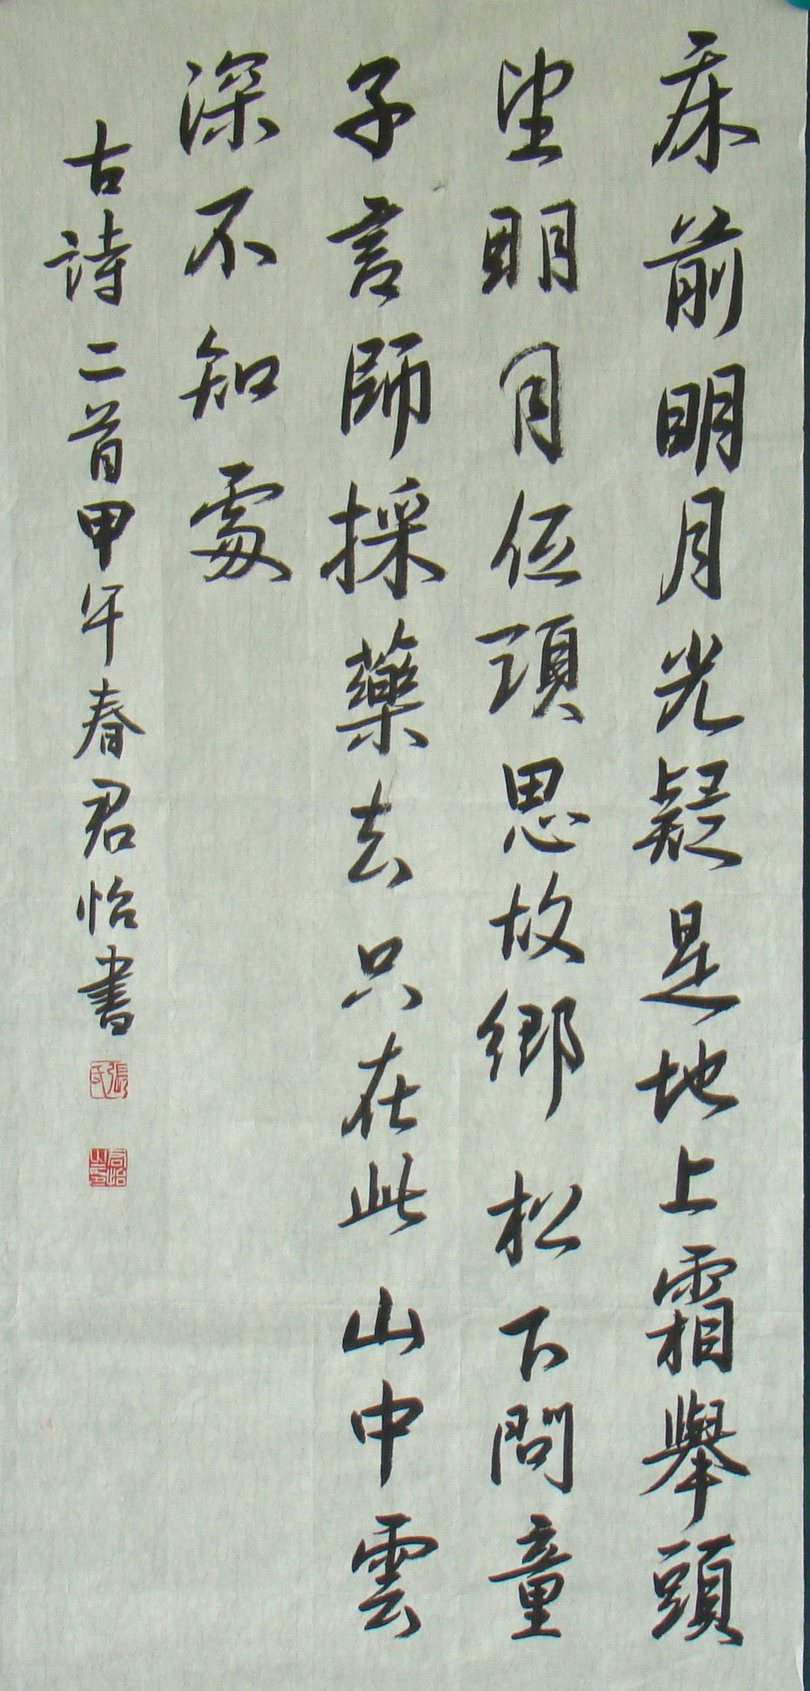 床前明月光疑是地上霜舉頭
望明月低頭思故鄉松下問童
子言師採藥去只在此山中雲
深不知處
古詩二首甲午春君怡書
張氏
君怡之印